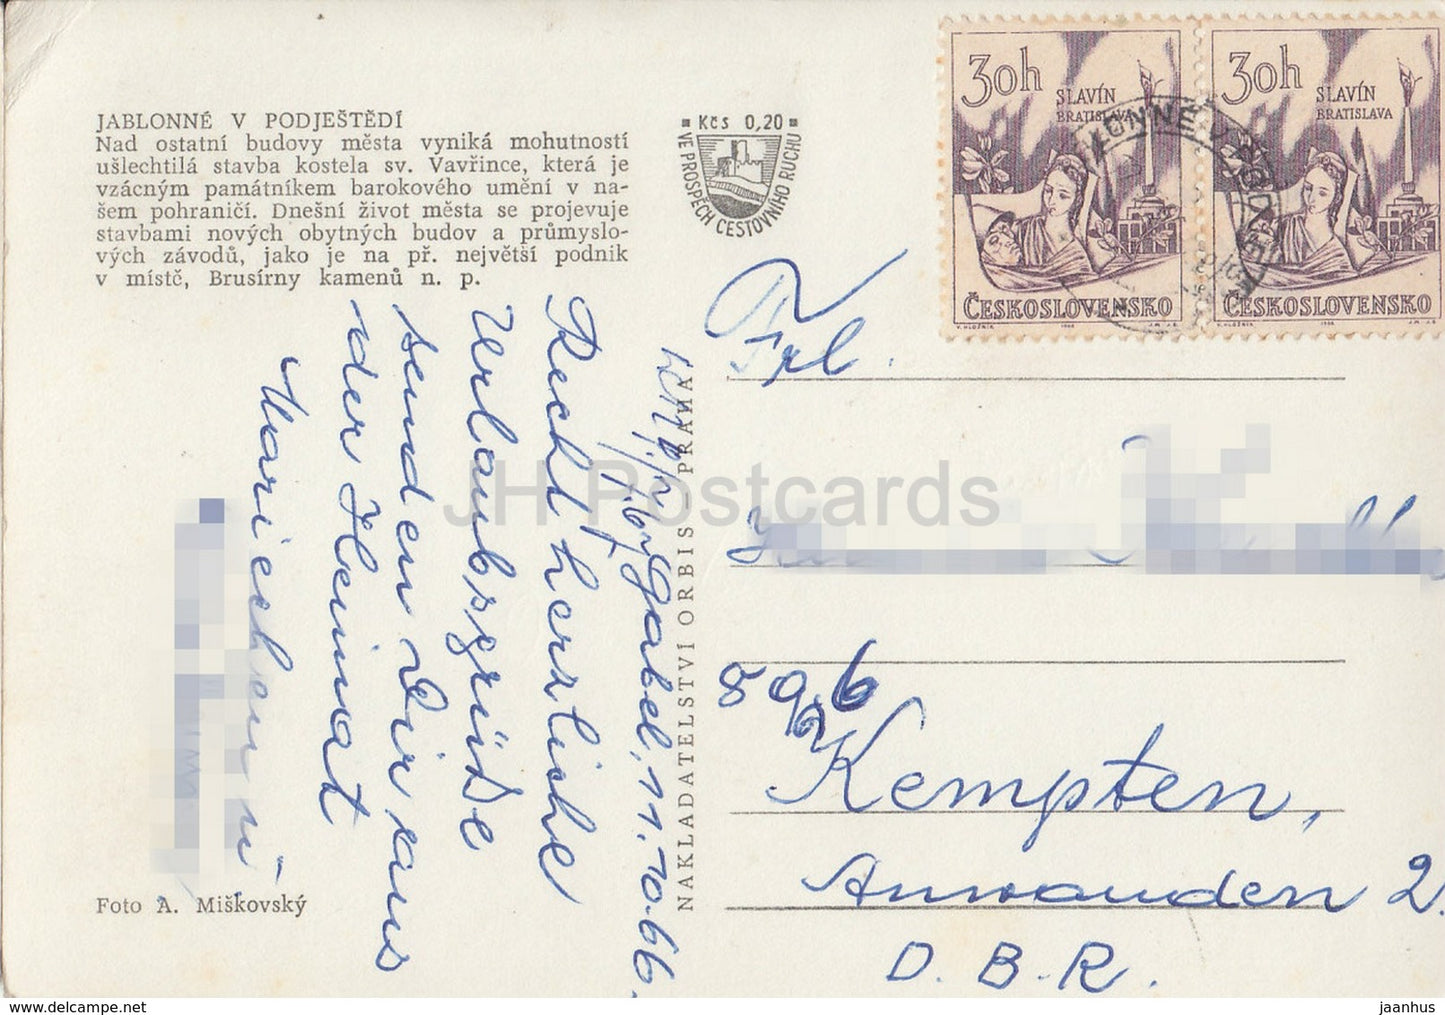 JABLONNÉ V PODJEŠTĚDÍ
Nad ostatní budovy města vyniká mohutností
ušlechtilá stavba kostela sv. Vavřince, která je
vzácným památníkem barokového umění v na-
šem pohraničí. Dnešní život města se projevuje
stavbami nových obytných budov a průmyslo-
vých závodů, jako je na př. největší podnik
v místě, Brusírny kamenů n. p.
Kčs 0,20
VE PROSPĚCH CESTOVNÍHO RUCHU
30h
SLAVÍN
BRATISLAVA
ČESKOSLOVENSKO
V. HLOŽNÍK 1966 J.M. J.S.
30h
SLAVÍN
BRATISLAVA
ČESKOSLOVENSKO
V. HLOŽNÍK 1966 J.M. J.S.
Gabel, 11.10.66.
Recht herzliche
Urlaubsgrüße
senden Dir aus
der Heimat
Mariechen u
NAKLADATELSTVÍ ORBIS – PRAHA
Frl.
896
Kempten,
Anwanden 2.
D. B. R.
Foto A. Miškovský
JH Postcards
www.delcampe.net
jaanhus